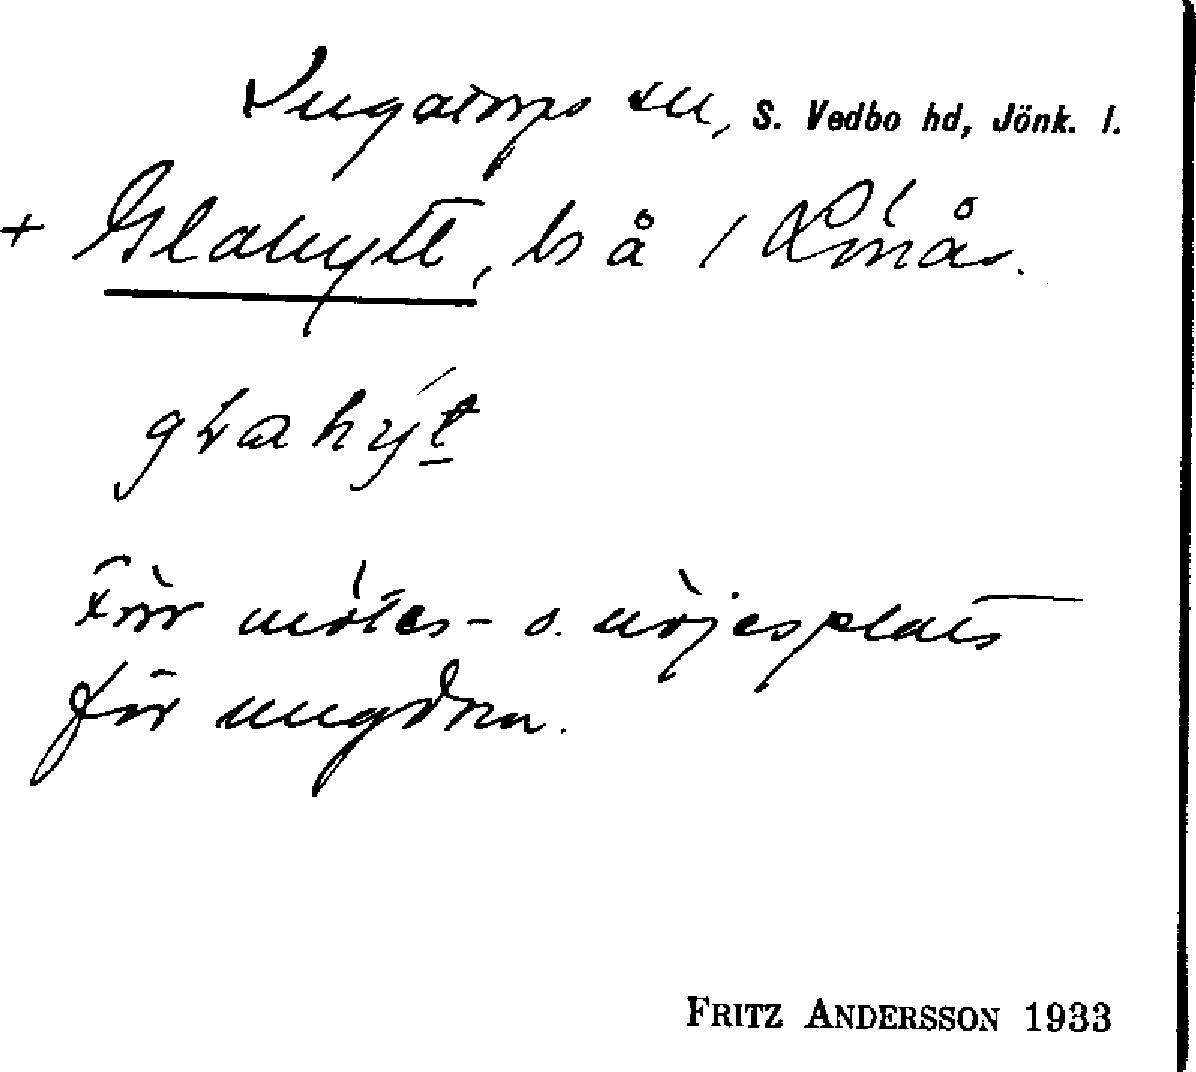 Ingatorps sn, S. Vedbo hd, Jönk. l.
+ Glahytt, ls å 1
glahýt
Förr mötes- o. nöjesplats
för ungdom.
FRITZ ANDERSSON 1933